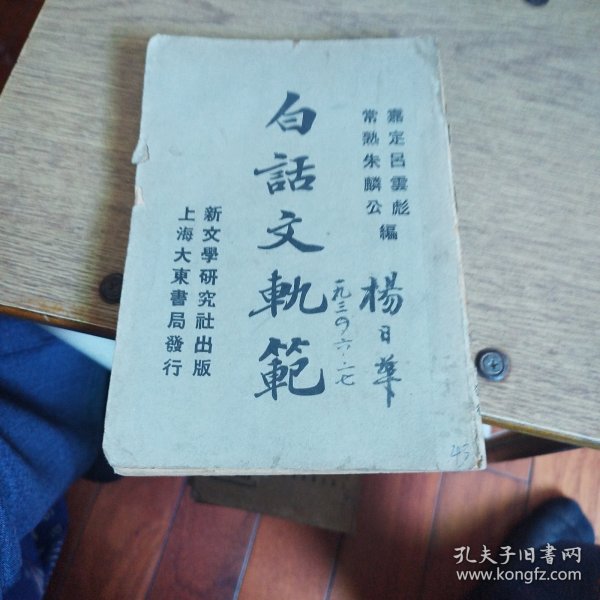 嘉定呂雲彪
常熟朱麟公
編
白話文軌範
新文學研究社出版
上海大東書局發行
楊日華
一九三〇·六·二七
43
孔夫子旧书网
www.kongfz.com